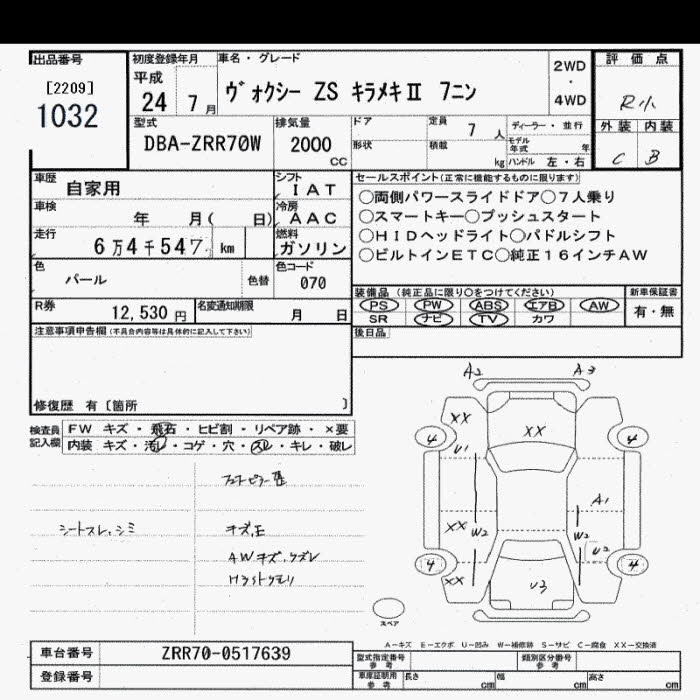 出品番号
[2209]
1032
初度登録年月
平成
24 7月
車名・グレード
ヴォクシー ZS キラメキⅡ 7ニン
2WD
・
4WD
評価点
R小
外装 内装
C B
型式
DBA-ZRR70W
排気量
2000
CC
ドア
形状
定員 7 人
積載 kg
ディーラー・並行
モデル年式 年
ハンドル 左・右
車歴
自家用
シフト
IAT
車検
年 月( 日)
冷房
AAC
走行
6万4千547 km
燃料
ガソリン
色
パール
色替
色コード
070
R券
12,530 円
名変通知期限
月 日
セールスポイント(正常に機能するものに限ります)
○両側パワースライドドア○7人乗り
○スマートキー○プッシュスタート
○HIDヘッドライト○パドルシフト
○ビルトインETC○純正16インチAW
装備品(純正品に限り○をつけてください)
PS PW ABS エアB AW
SR ナビ TV カワ
新車保証書
有・無
後日品
注意事項申告欄(不具合内容等は具体的に記入して下さい)
修復歴 有〔箇所 〕
検査員
記入欄
FW キズ・飛石・ヒビ割・リペア跡・×要
内装 キズ・汚レ・コゲ・穴・スレ・キレ・破レ
シートスレ、シミ
AWキズ、クスレ
A2 A3
XX
XX
U1
4 4
A1
XX W2
W2
U2
4 4
XX
U3
スペア
A-キズ E-エクボ U-凹み W-補修跡 S-サビ C-腐食 XX-交換済
車台番号
ZRR70-0517639
登録番号
型式指定番号
参考
類別区分番号
参考
車庫証明用
参考
長さ cm
幅 cm
高さ cm